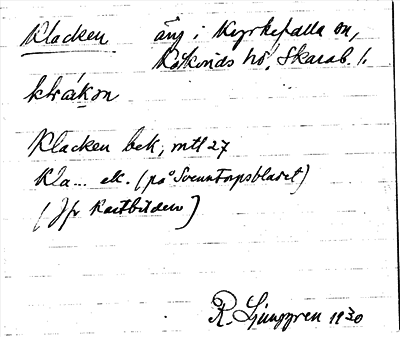 Klacken äng i Kyrkefalla sn,
Kåkinds hd, Skarab. l.
klákon
Klacken bek, mtl 27
Kla... ek. (på Svenntorpsbladet)
(Jfr Kartbilden)
R. Ljunggren 1930